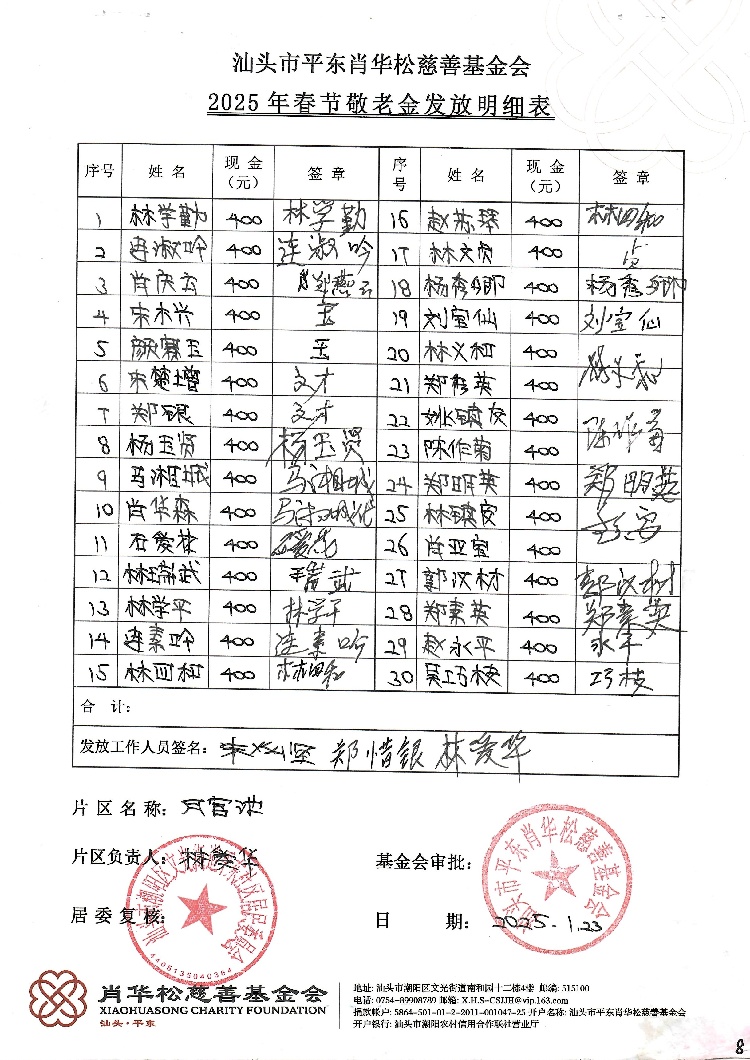 汕头市平东肖华松慈善基金会
2025年春节敬老金发放明细表
序号 姓名 现金(元) 签章 序号 姓名 现金(元) 签章
1 林学勤 400 林学勤 16 赵苏琴 400 林四和
2 连淑吟 400 连淑吟 17 林文贤 400
3 肖庆云 400 18 杨秀卿 400 杨秀卿
4 宋木兴 400 玉 19 刘宝仙 400 刘宝仙
5 颜赛玉 400 玉 20 林义和 400
6 宋楚增 400 文才 21 郑 英 400
7 郑银 400 文才 22 姚镇友 400
8 杨玉贤 400 杨玉贤 23 陈作菊 400 陈作菊
9 马湘城 400 马湘城 24 郑明英 400 郑明英
10 肖华森 400 25 林镇安 400
11 石爱花 400 26 肖亚室 400
12 林瑞武 400 瑞武 27 郭汉材 400 郭汉材
13 林学平 400 林学平 28 郑素英 400 郑素英
14 连素吟 400 连素吟 29 赵永平 400 永平
15 林四和 400 林四和 30 吴巧枝 400 巧枝
合计:
发放工作人员签名: 郑惜银 林爱华
片区名称:
片区负责人: 林爱华
基金会审批:
居委复核:
日期: 2025.1.23
汕头市平东肖华松慈善基金会
4405135040364
肖华松慈善基金会
XIAOHUASONG CHARITY FOUNDATION
汕头·平东
地址: 汕头市潮阳区文光街道南和园十二栋4楼 邮编: 515100
电话: 0754-89908789 邮箱: X.H.S-CSJJH@vip.163.com
捐款帐户: 5864-501-01-2-2011-001047-25 开户名称: 汕头市平东肖华松慈善基金会
开户银行: 汕头市潮阳农村信用合作联社营业厅
8